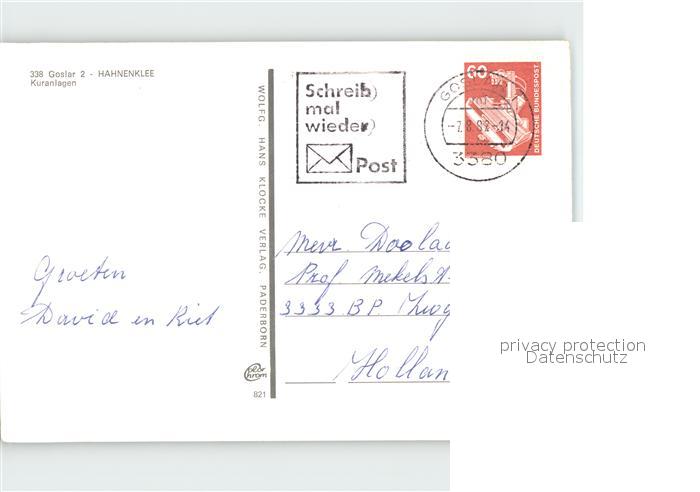 338 Goslar 2 - HAHNENKLEE
Kuranlagen
Groeten
David en Riet
WOLFG. HANS KLOCKE VERLAG, PADERBORN
Color Chrom
821
Schreib
mal
wieder
Post
GOSLAR 1
-7.8.82-14
3380
60
DEUTSCHE BUNDESPOST
Mevr. Doola
Prof.
3333 BP.
Hollan
privacy protection
Datenschutz